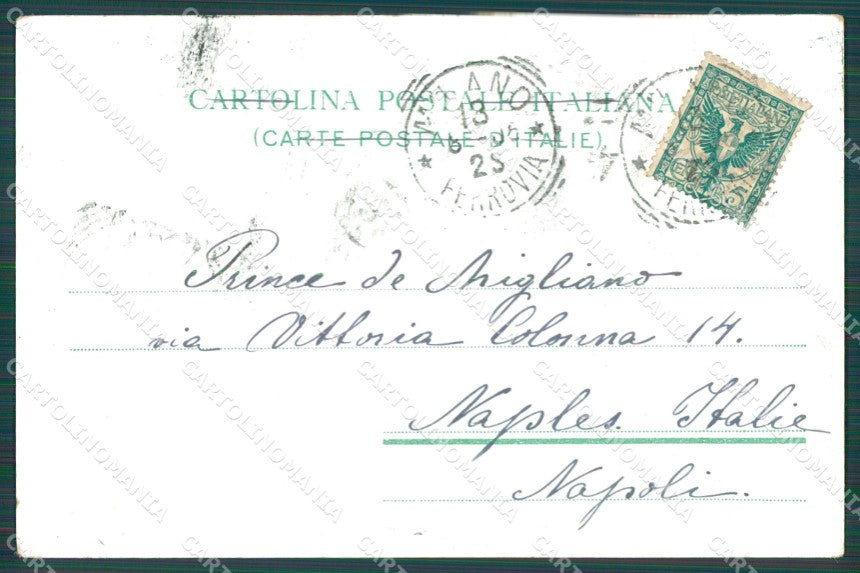 CARTOLINA POSTALE ITALIANA
(CARTE POSTALE D'ITALIE)
MILANO
13
25
FERROVIA
POSTE ITALIANE
Prince de Migliano
via Vittoria Colonna 14.
Naples. Italie
Napoli.
CARTOLINOMANIA